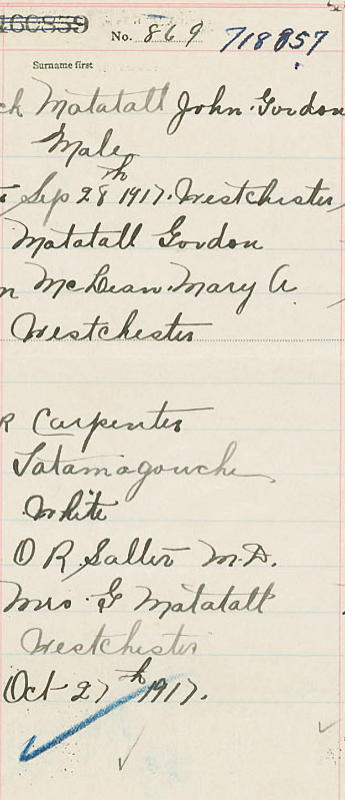 160859 No. 869 718857
Surname first
Matatall John Gordon
Male
Sep 28th 1917. Westchester
Matatall Gordon
McLean. Mary A
Westchester
Carpenter
Tatamagouche
White
O R Salter M.D.
Mrs G Matatall
Westchester
Oct 27th 1917.